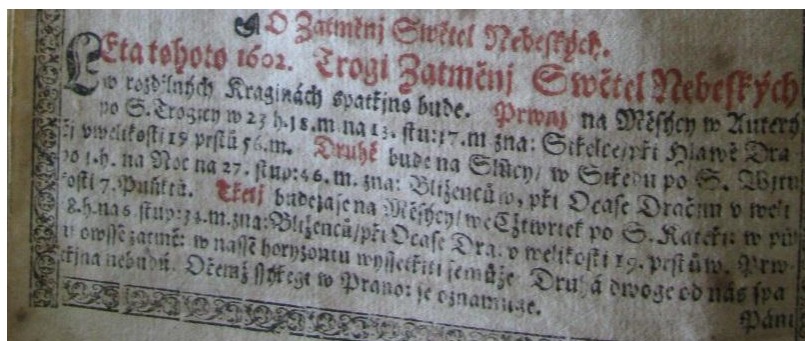 O Zatměnj Swětel Nebeſkých.
LEta tohoto 1602. Trogj Zatměnj Swětel Nebeſkých
w rozdjlných Kragjnách ſpatřjno bude. Prwnj na Měſýcy w Auterý
po S. Trogicy w 23 h. 18. m. na 13. ſtu: 17. m zna: Střelce/ při Hlawě Dra
čj v welikoſti 19 prſtů 56. m. Druhé bude na Slůcy/ w Středu po S.
po 1. h. na Noc na 27. ſtup: 46. m. zna: Bljženců w, při Ocaſe Dračjm v weli
koſti 7. Puňktů. Třetj bude zaſe na Měſýcy/ we Cžtwrtek po S. Kateři: w
8. h. na 6 ſtup: zna: Bljženců/ při Ocaſe Dra: v welikoſti 19. prſtů w. Prw-
owſſē zatmě: w naſſē horyzontu wyſſetřiti ſe může Druhá dwoge od nás ſpa
třjna nebudú. Očemž w Prano: ſe oznamuge.